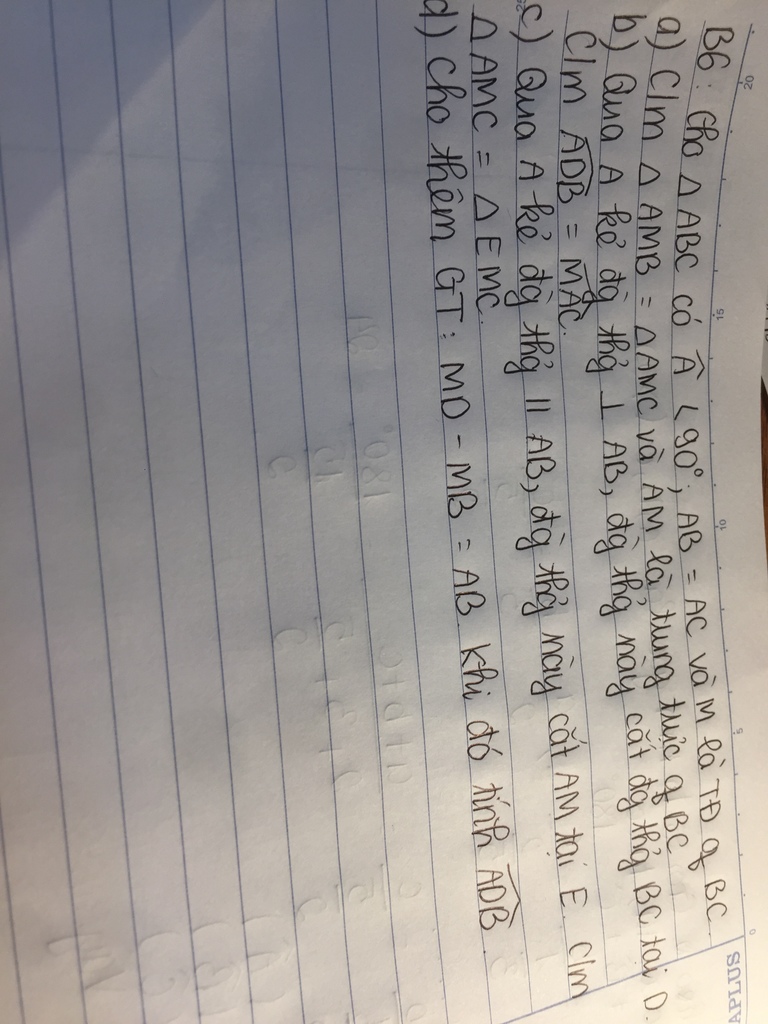 APLUS
20 15 10 5 0
B6: Cho △ ABC có Â < 90°; AB = AC và M là TĐ of BC.
a) C/m △ AMB = △ AMC và AM là trung trực of BC
b) Qua A kẻ đg thg ⊥ AB, đg thg này cắt đg thg BC tại D.
C/m ADB = MAC.
c) Qua A kẻ đg thg || AB, đg thg này cắt AM tại E. C/m
△ AMC = △ EMC.
d) Cho thêm GT: MD - MB = AB khi đó tính ADB.